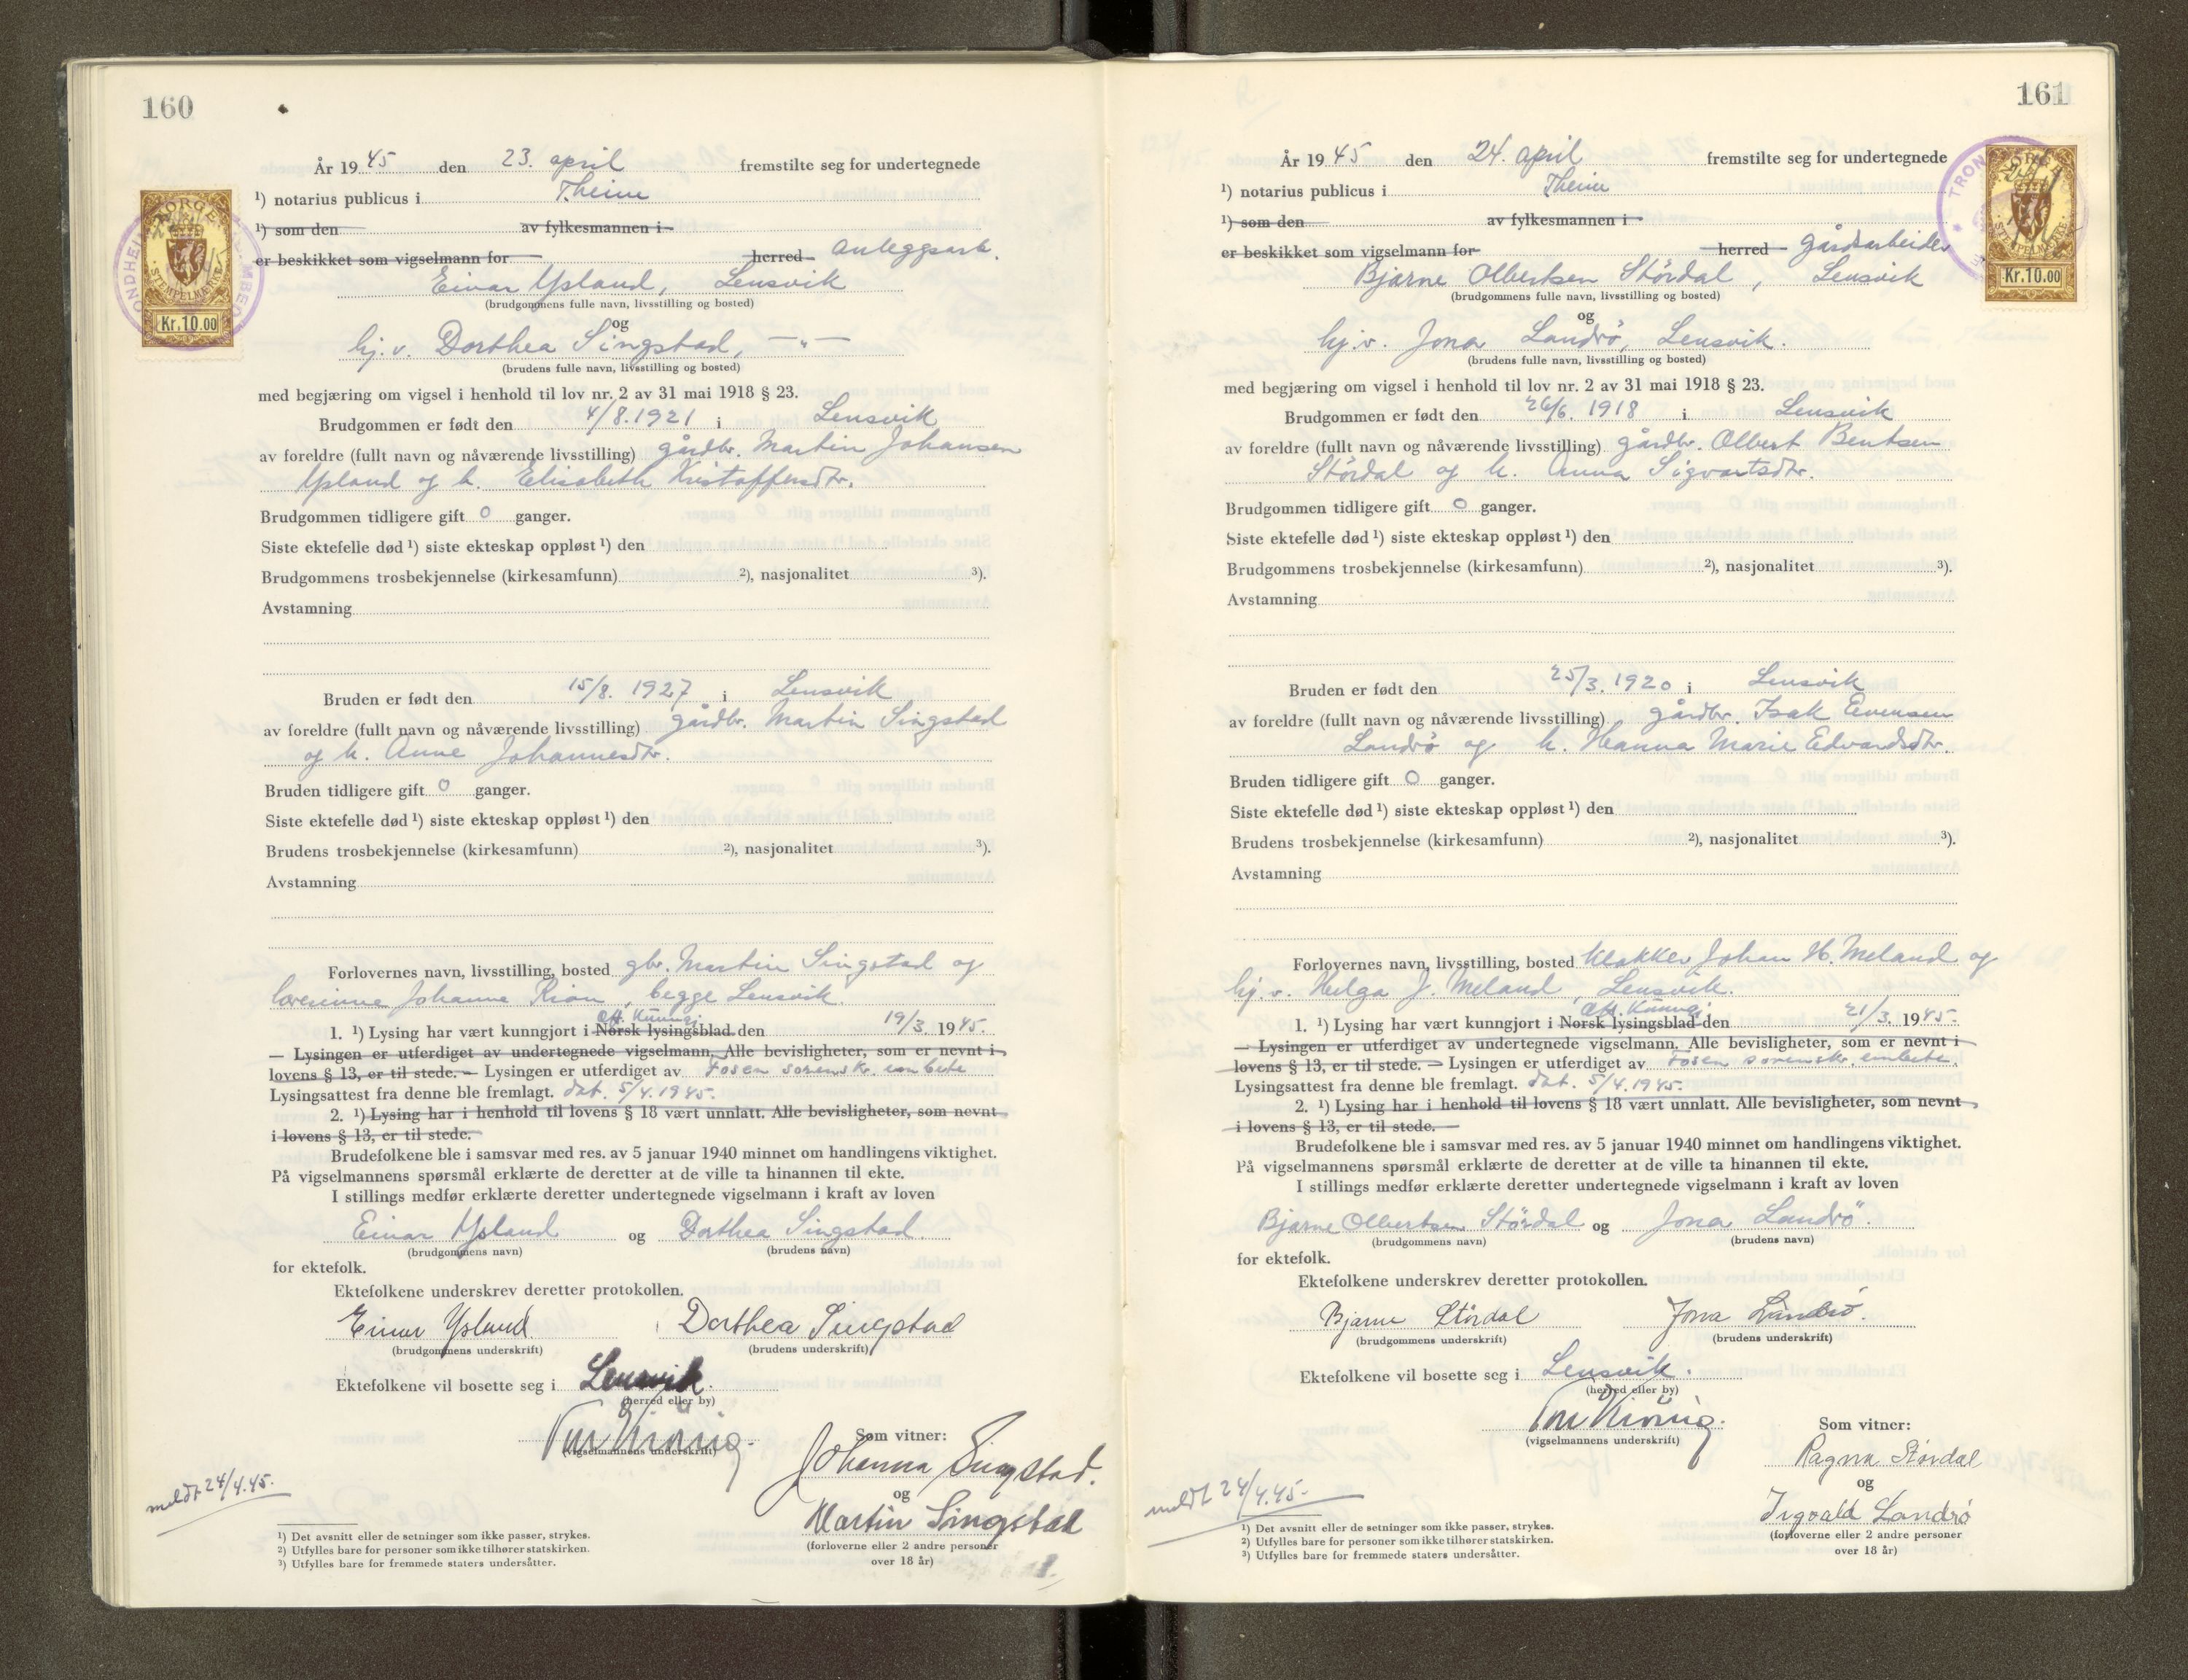 160
År 1945 den 23. april fremstilte seg for undertegnede
¹) notarius publicus i Theim
¹) som den av fylkesmannen i
er beskikket som vigselmann for herred anleggsarb.
Einar Ysland, Lensvik
(brudgommens fulle navn, livsstilling og bosted)
og
hj.v. Dorthea Singstad, —"—
(brudens fulle navn, livsstilling og bosted)
med begjæring om vigsel i henhold til lov nr. 2 av 31 mai 1918 § 23.
Brudgommen er født den 4/8.1921 i Lensvik
av foreldre (fullt navn og nåværende livsstilling) gårdbr. Martin Johansen
Ysland og h. Elisabeth Kristoffersdtr.
Brudgommen tidligere gift 0 ganger.
Siste ektefelle død ¹) siste ekteskap oppløst ¹) den
Brudgommens trosbekjennelse (kirkesamfunn) ²), nasjonalitet ³).
Avstamning
Bruden er født den 15/8. 1927 i Lensvik
av foreldre (fullt navn og nåværende livsstilling) gårdbr. Martin Singstad
og h. Anne Johannesdtr.
Bruden tidligere gift 0 ganger.
Siste ektefelle død ¹) siste ekteskap oppløst ¹) den
Brudens trosbekjennelse (kirkesamfunn) ²), nasjonalitet ³).
Avstamning
Forlovernes navn, livsstilling, bosted gbr. Martin Singstad og
lærerinne Johanna , begge Lensvik.
Off. Kunngj.
1. ¹) Lysing har vært kunngjort i Norsk lysingsblad den 19/3. 1945.
— Lysingen er utferdiget av undertegnede vigselmann. Alle bevisligheter, som er nevnt i
lovens § 13, er til stede. — Lysingen er utferdiget av Fosen sorenskr. embete
Lysingsattest fra denne ble fremlagt. dat. 5/4.1945.
2. ¹) Lysing har i henhold til lovens § 18 vært unnlatt. Alle bevisligheter, som nevnt
i lovens § 13, er til stede.
Brudefolkene ble i samsvar med res. av 5 januar 1940 minnet om handlingens viktighet.
På vigselmannens spørsmål erklærte de deretter at de ville ta hinannen til ekte.
I stillings medfør erklærte deretter undertegnede vigselmann i kraft av loven
Einar Ysland og Dorthea Singstad.
(brudgommens navn) (brudens navn)
for ektefolk.
Ektefolkene underskrev deretter protokollen.
Einar Ysland Dorthea Singstad
(brudgommens underskrift) (brudens underskrift)
Ektefolkene vil bosette seg i Lensvik.
(herred eller by)
(vigselmannens underskrift)
Som vitner:
Johanna Singstad.
og
Martin Singstad
(forloverne eller 2 andre personer
over 18 år)
meldt 24/4.45.
¹) Det avsnitt eller de setninger som ikke passer, strykes.
²) Utfylles bare for personer som ikke tilhører statskirken.
³) Utfylles bare for fremmede staters undersåtter.
NORGE
STEMPELMERKE
Kr.10.00
161
År 1945 den 24. april fremstilte seg for undertegnede
¹) notarius publicus i Theim
¹) som den av fylkesmannen i
er beskikket som vigselmann for herred gårdsarbeider
Bjarne Olbertsen Stördal, Lensvik
(brudgommens fulle navn, livsstilling og bosted)
og
hj.v. Jona Landrö, Lensvik.
(brudens fulle navn, livsstilling og bosted)
med begjæring om vigsel i henhold til lov nr. 2 av 31 mai 1918 § 23.
Brudgommen er født den 26/6. 1918 i Lensvik
av foreldre (fullt navn og nåværende livsstilling) gårdbr. Olbert Bentsen
Stördal og h. Anna Sigvartsdtr.
Brudgommen tidligere gift 0 ganger.
Siste ektefelle død ¹) siste ekteskap oppløst ¹) den
Brudgommens trosbekjennelse (kirkesamfunn) ²), nasjonalitet ³).
Avstamning
Bruden er født den 25/3. 1920 i Lensvik
av foreldre (fullt navn og nåværende livsstilling) gårdbr. Isak Evensen
Landrö og h. Hanna Marie Edvardsdtr.
Bruden tidligere gift 0 ganger.
Siste ektefelle død ¹) siste ekteskap oppløst ¹) den
Brudens trosbekjennelse (kirkesamfunn) ²), nasjonalitet ³).
Avstamning
Forlovernes navn, livsstilling, bosted klokker Johan H. Meland og
hj.v. Helga J. Meland, Lensvik.
Off. Kunngj.
1. ¹) Lysing har vært kunngjort i Norsk lysingsblad den 21/3. 1945.
— Lysingen er utferdiget av undertegnede vigselmann. Alle bevisligheter, som er nevnt i
lovens § 13, er til stede. — Lysingen er utferdiget av Fosen sorenskr. embete.
Lysingsattest fra denne ble fremlagt. dat. 5/4.1945.
2. ¹) Lysing har i henhold til lovens § 18 vært unnlatt. Alle bevisligheter, som nevnt
i lovens § 13, er til stede.
Brudefolkene ble i samsvar med res. av 5 januar 1940 minnet om handlingens viktighet.
På vigselmannens spørsmål erklærte de deretter at de ville ta hinannen til ekte.
I stillings medfør erklærte deretter undertegnede vigselmann i kraft av loven
Bjarne Olbertsen Stördal og Jona Landrö.
(brudgommens navn) (brudens navn)
for ektefolk.
Ektefolkene underskrev deretter protokollen.
Bjarne Stördal Jona Landrö.
(brudgommens underskrift) (brudens underskrift)
Ektefolkene vil bosette seg i Lensvik.
(herred eller by)
(vigselmannens underskrift)
Som vitner:
Ragna Stördal
og
Ingvald Landrö
(forloverne eller 2 andre personer
over 18 år)
meldt 24/4.45.
¹) Det avsnitt eller de setninger som ikke passer, strykes.
²) Utfylles bare for personer som ikke tilhører statskirken.
³) Utfylles bare for fremmede staters undersåtter.
STEMPELMERKE
Kr.10.00